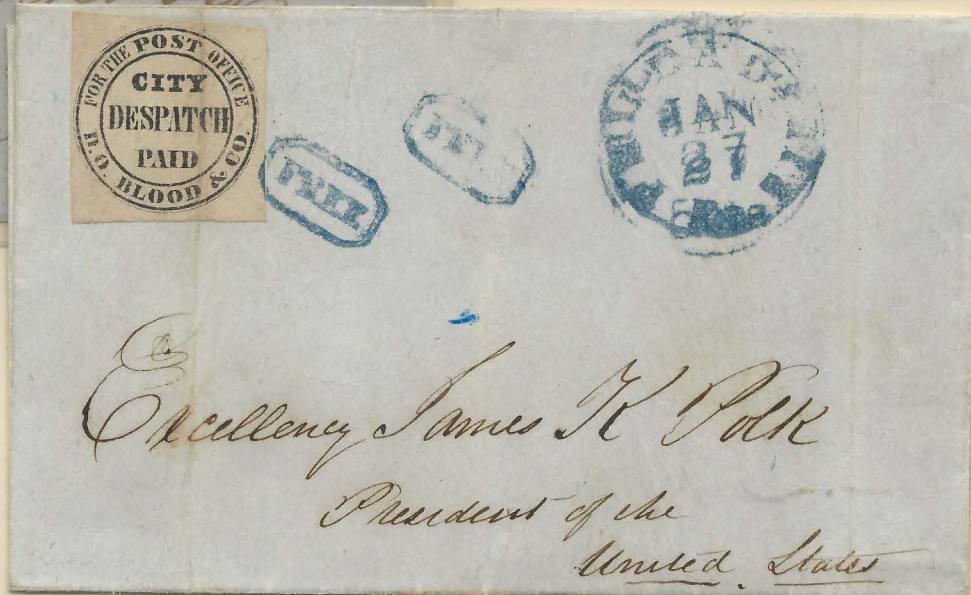 FOR THE POST OFFICE
CITY
DESPATCH
PAID
D.O. BLOOD & CO.
FREE
FREE
PHILADELPHIA
JAN
27
Excellency James K Polk
President of the
United States